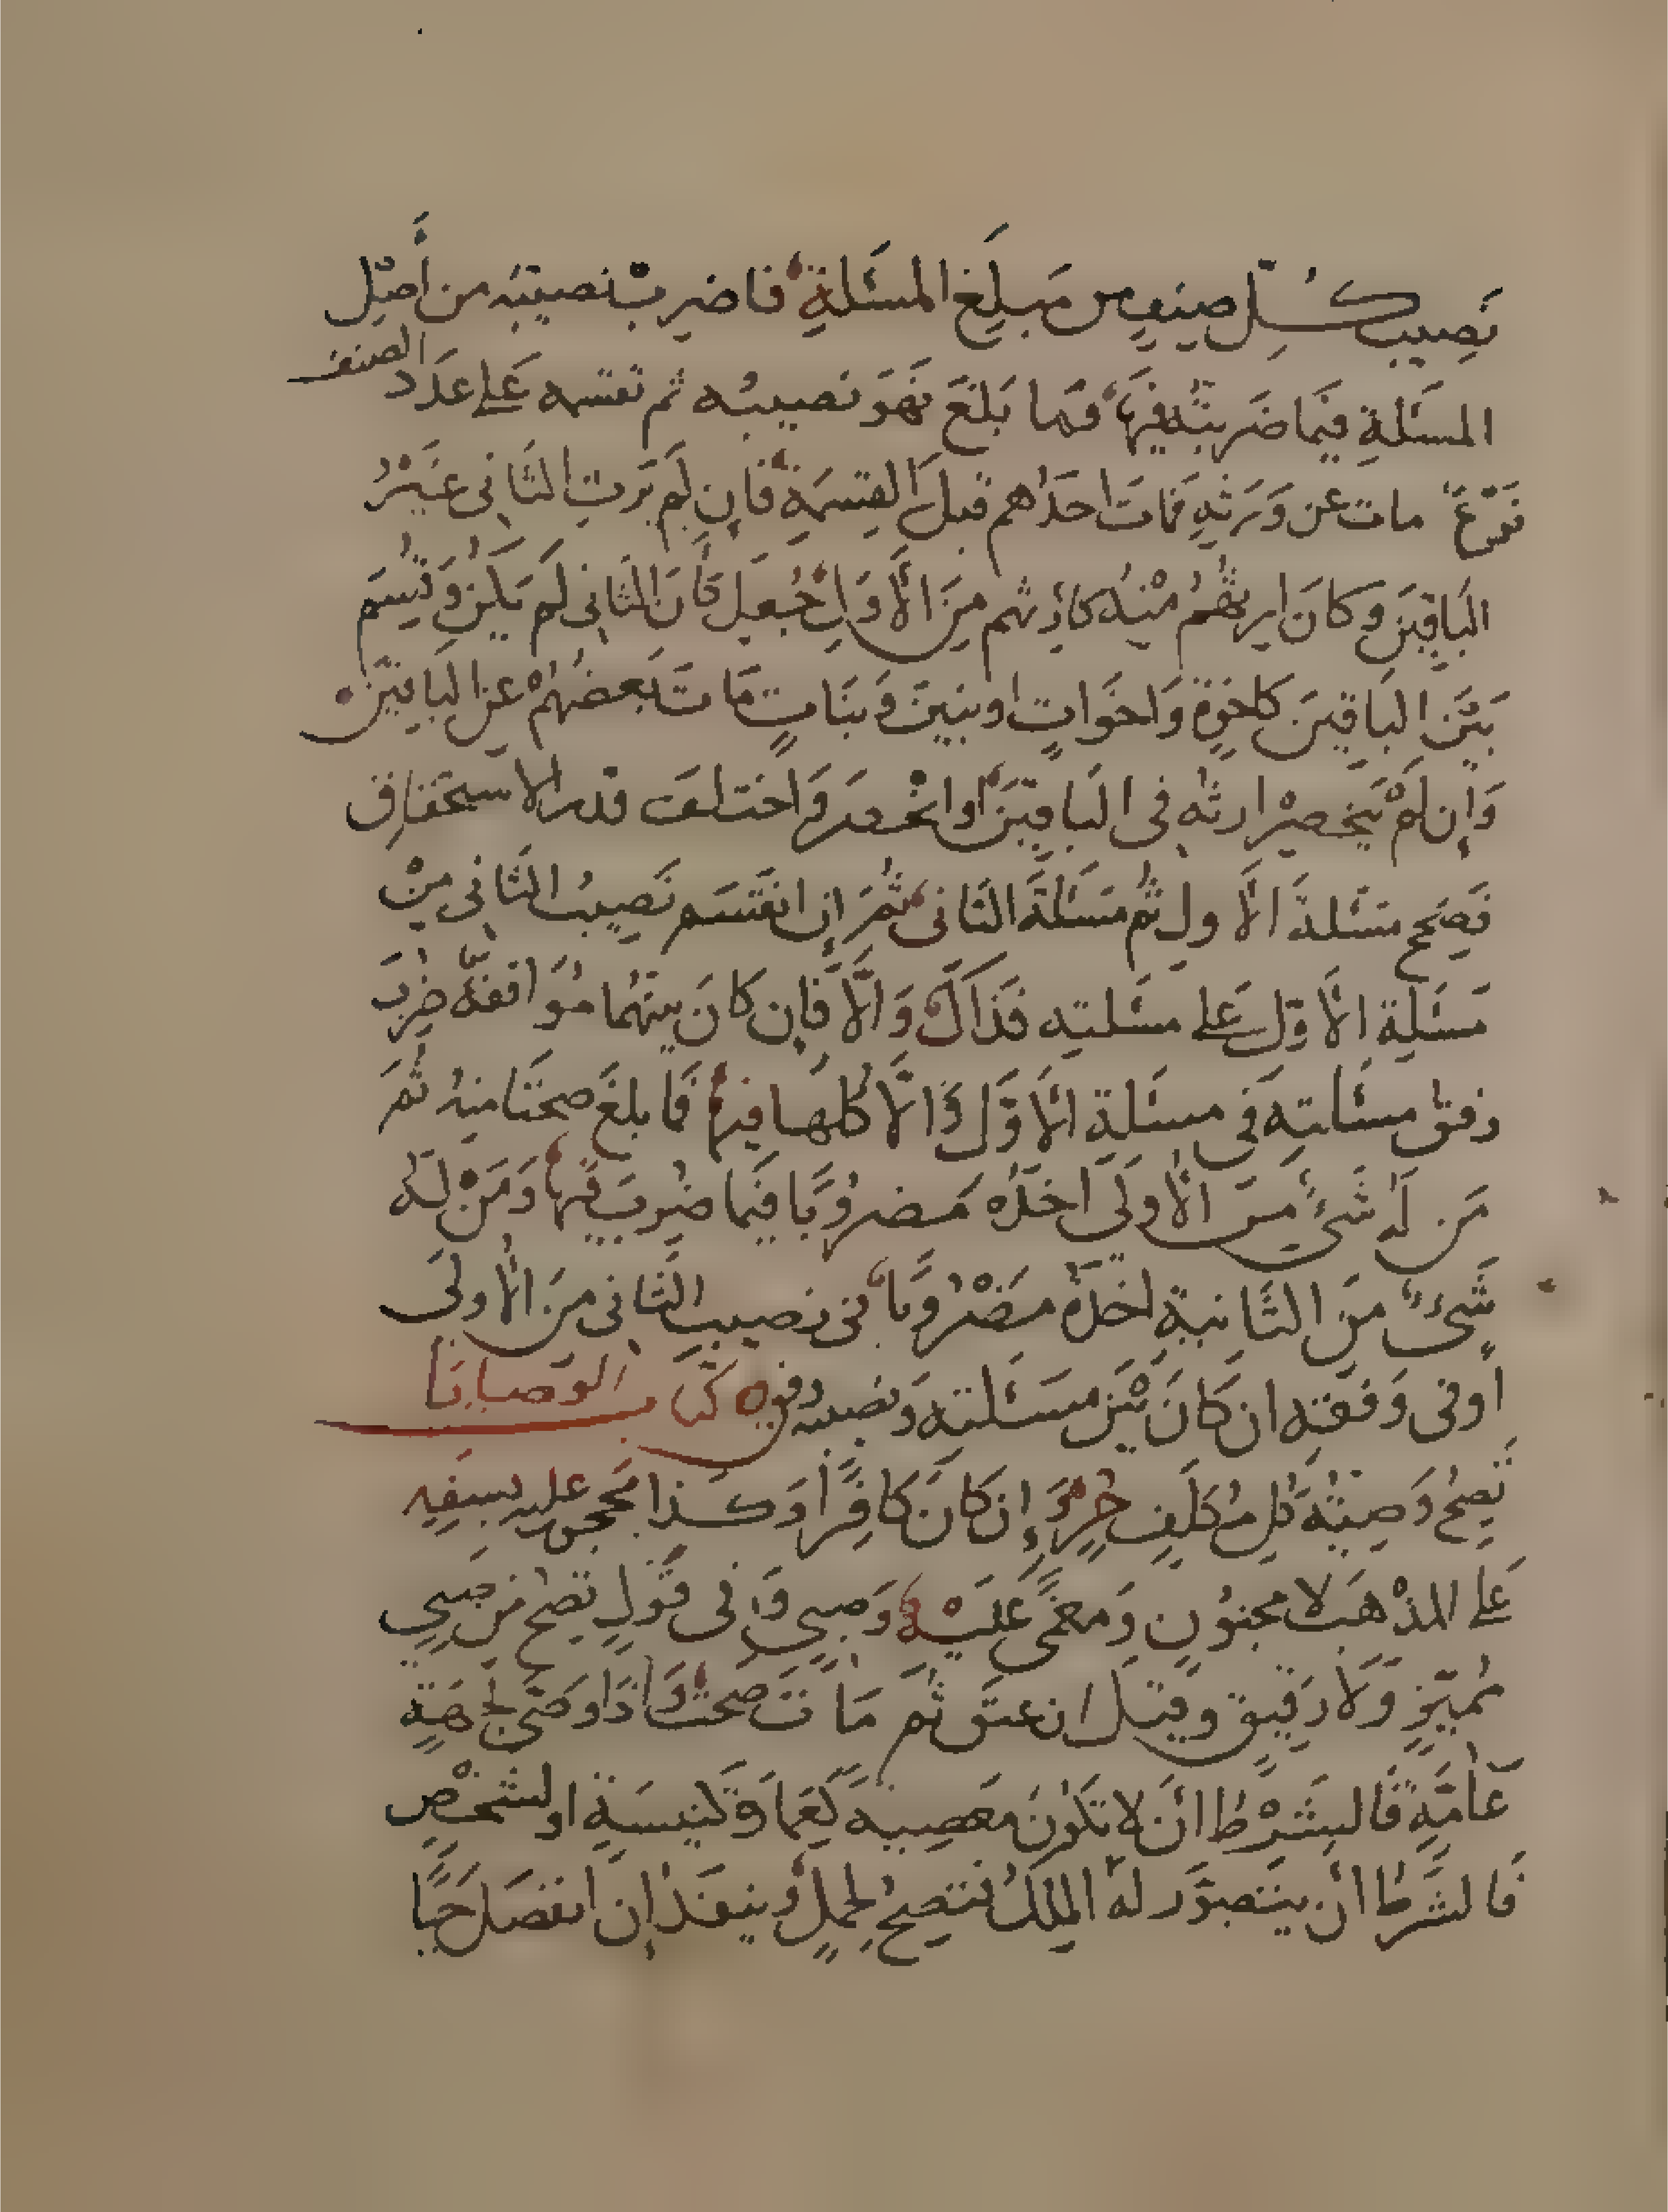 نَصِيبَ كُلِّ صِنفٍ مِن مَبلَغِ المسَئلةِ فاضرِب نصيبَه من أَصْلِ
المسَئلةِ فيمَا ضَربتَه فيهَا فمَا بَلَغَ فَهُوَ نصيبُه ثم تقسمه عَلى عدَد الصنف
فَرْعٌ مات عن وَرَثَةٍ فمَاتَ احدُهم قبلَ القِسمَةِ فَإن لَم يَرِث الثَانى غَيْرُ
البَاقِينَ وَكانَ ارثهُم مِنْهُ كارثهم مِنَ الأَوَّلِ جُعِلَ كأَن الثَانى لَم يَكُن وَقُسِمَ
بَيْنَ البَاقِينَ كاخوةٍ وَاخَوَاتٍ او بنينَ وَبنَاتٍ مَاتَ بَعضُهُمْ عَنِ الباقينَ
وَإن لَمْ يَنحَصِرْ ارثه فى البَاقِينَ اوانحصرَ وَاختلف قدر الاستحقاق
فَصَحِّح مسَئلةَ الأَول ثم مَسَئلَةَ الثَانى ثُمَ إِن انقَسَم نَصِيبُ الثَانى مِنْ
مَسَئلَةِ الأَوّلِ عَلى مسئلته فَذَاكَ وَالَّا فَإِن كانَ بينَهُما مُوَافقَةٌ ضُرِبَ
وفق مسئلته فى مسئلةِ الأَوَّلِ وَالَّا كُلهَا فيهَا فمَا بلَغَ صحتَا منهُ ثُمَ
مَن لَهُ شَىْءٌ مِنَ الأُولَى اخذَه مَضرُوبًا فيمَا ضُرِبَ فيهَا وَمَنْ لَهُ
شَىْءٌ مِنَ الثَانيةِ اخذَهُ مضْرُوبًا فى نصيبِ الثَانى مِنَ الأُولَى
أو فى وَفقِه ان كَانَ بَيْنَ مسَئلتهِ وَنصيبه وفق كتَاب الوَصَايَا
تَصِحُ وَصِيَّةُ كُلِ مُكَلَفٍ حُرٍّ وَإِن كَانَ كَافِرًا وَكَذَا محجورعليه بسَفَهٍ
عَلى المذْهَب لا مجنُونٍ وَمغمًى عَلَيْه وَصبى وَفى قَولٍ تصح مِن صبىٍ
مُميّزٍ وَلَا رَقيقٍ وقيل ان عتَق ثُمَ مَاتَ صَحت وَاذَا وصَى لجهَةٍ
عَامَّةٍ فَالشَرْطُ أَن لا تكونَ مَعصِيةً كَعِمَارَةِ كَنِيسَةٍ او لشخْصٍ
فَالشَّرطُ أن يتَصوّر له المِلكُ فتصِحُ لحملٍ وَينفذُ إِن انفصَلَ حَيًّا